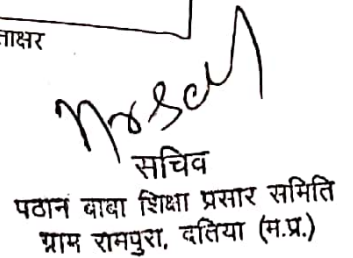 ताक्षर
सचिव
पठान बाबा शिक्षा प्रसार समिति
ग्राम रामपुरा, दतिया (म.प्र.)